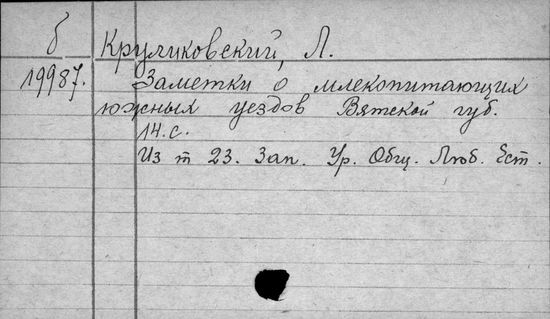 б Круликовский, Л.
19987. Заметки о млекопитающих
южных уездов Вятской губ.
14.с.
Из т 23. Зап. Ур. Общ. Люб. Ест.